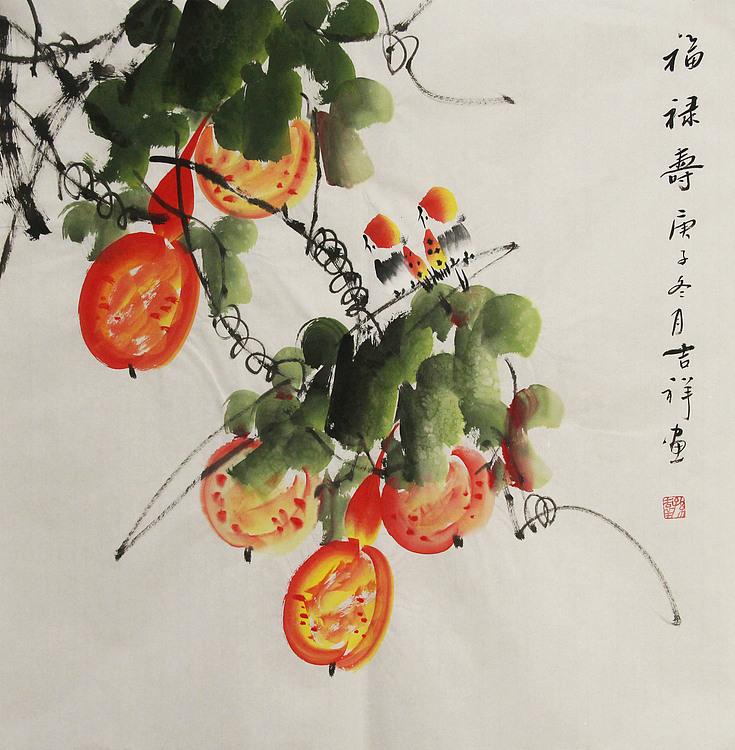 福禄寿庚子冬月吉祥画